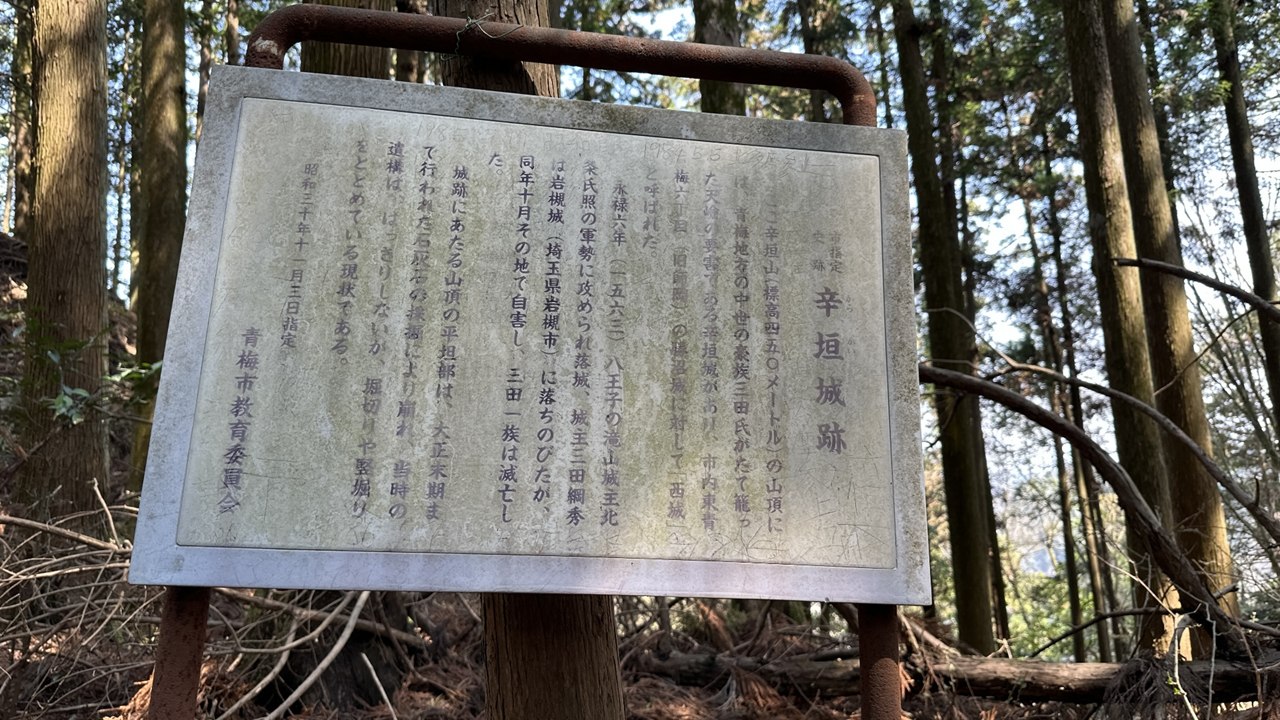 市指定
史跡
辛垣城跡
ここ辛垣山(標高四五〇メートル)の山頂に
は、青梅地方の中世の豪族三田氏がたて籠っ
た天嶮の要害である辛垣城があり、市内東青
梅六丁目の城に対して「西城」
と呼ばれた。
永禄六年(一五六三)八王子の滝山城主北
条氏照の軍勢に攻められ落城、城主三田綱秀
は岩槻城(埼玉県岩槻市)に落ちのびたが、
同年十月その地で自害し、三田一族は滅亡し
た。
城跡にあたる山頂の平坦部は、大正末期ま
で行われた石灰石の採掘により崩れ、当時の
遺構は、はっきりしないが、堀切りや竪堀り
をとどめている現状である。
昭和三十年十一月三日指定
青梅市教育委員会